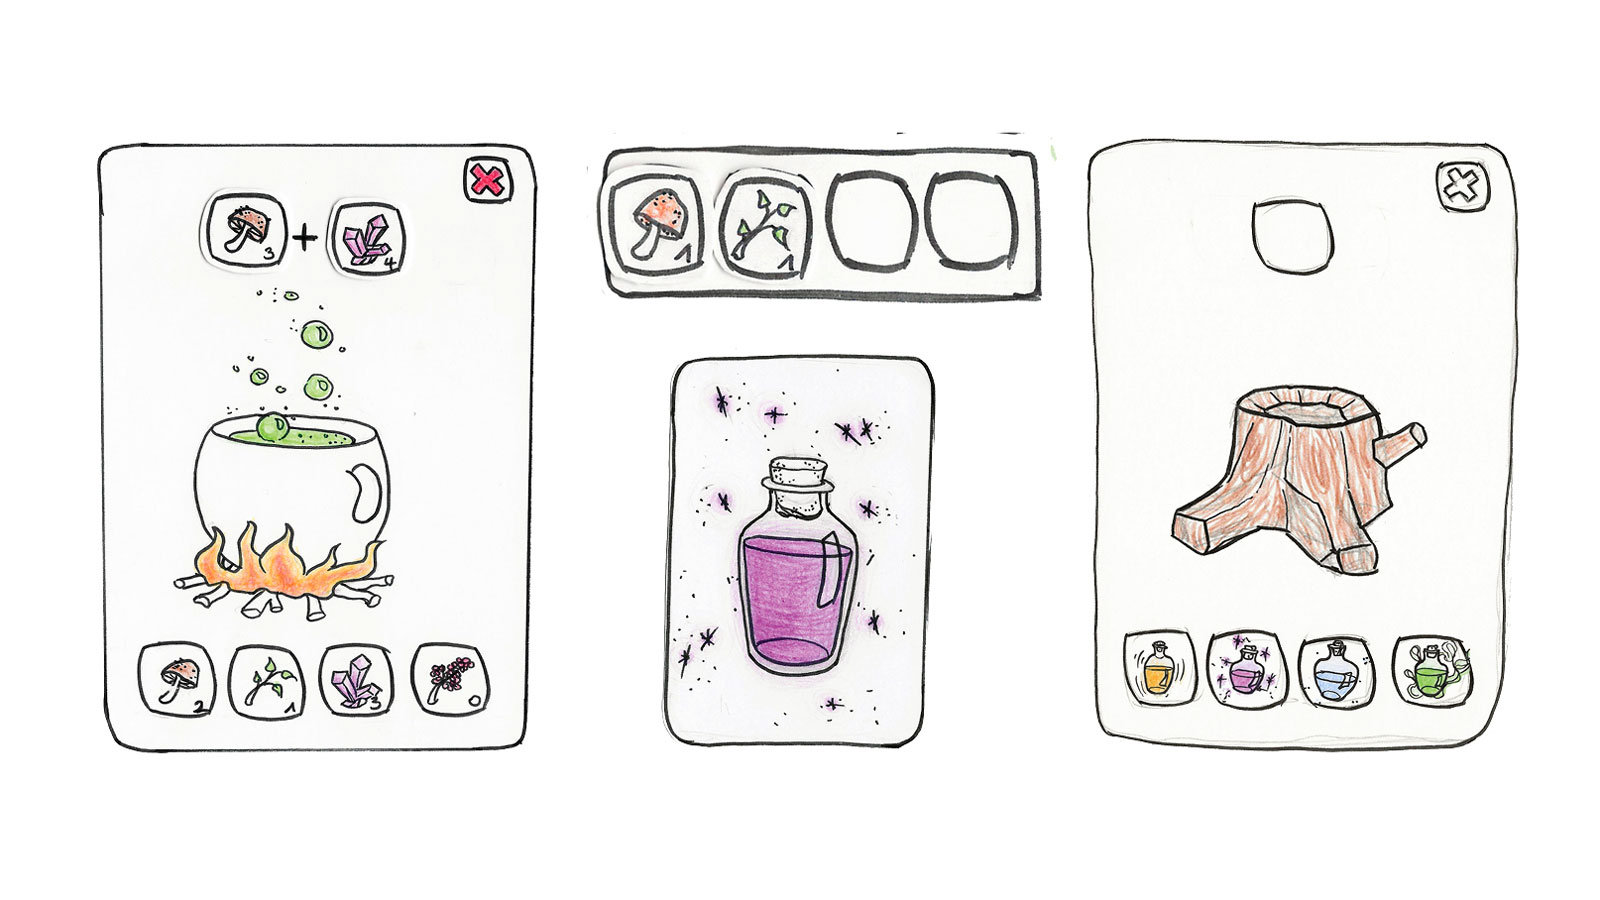 3 + 4
2 1 3 0
1 1